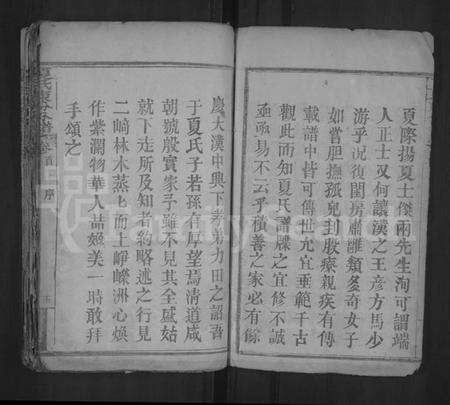 夏際揚夏士傑兩先生洵可謂端
人正士又何讓漢之王彥方馬少
游乎況復閨房肅雝類多奇女子
如嘗胆撫孤兒刲股療親疾有傳
載譜中皆可傳世尤宜垂範千古
觀此而知夏氏譜牒之宜修不誠
亟亟易不云乎積善之家必有餘
慶大漢中興下孝弟力田之詔吾
于夏氏子若孫有厚望焉清道咸
朝號殷實家予雖不見其全盛姑
就下走所及知者約略述之行見
二崎林木蒸蒸而上崢嶸洲心煥
作紫瀾物華人喆嫓美一時敢拜
手頌之
序